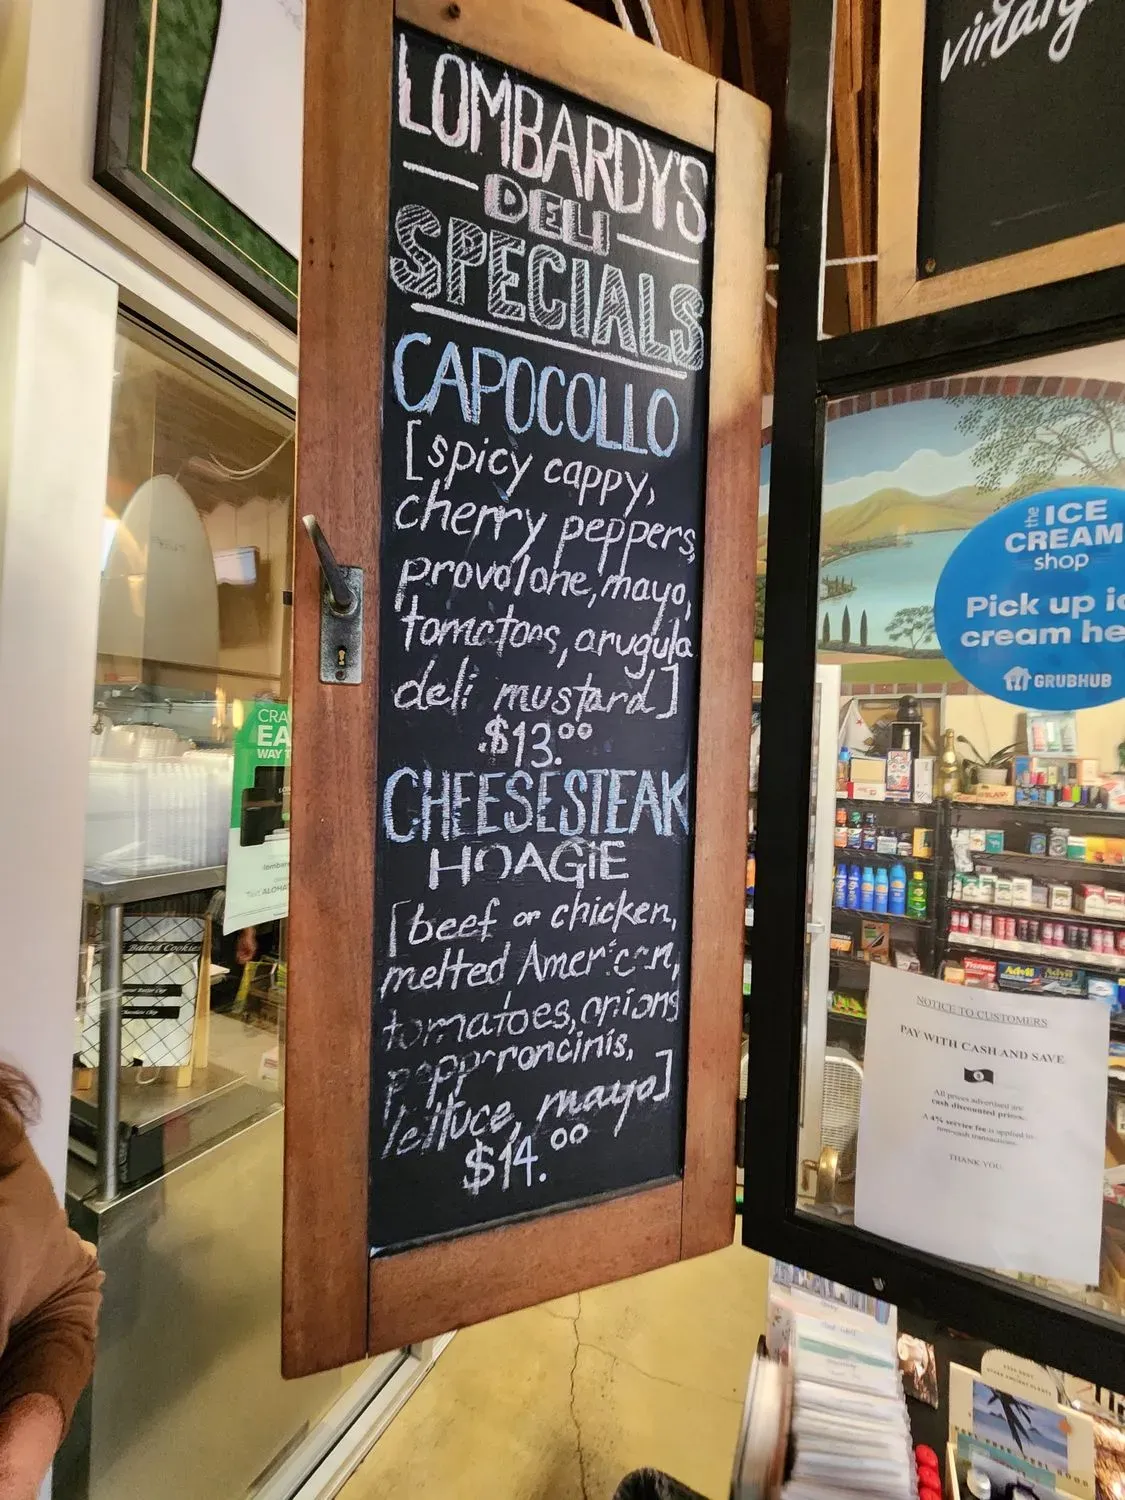 LOMBARDY'S
DELI
SPECIALS
CAPOCOLLO
[spicy cappy,
cherry peppers,
provolone, mayo,
tomatoes, arugula
deli mustard]
$13.00
CHEESESTEAK
HOAGIE
[beef or chicken,
melted American,
tomatoes, onions
pepperroncinis,
lettuce, mayo]
$14.00
the ICE
CREAM
shop
Pick up ic
cream he
GRUBHUB
NOTICE TO CUSTOMERS
PAY WITH CASH AND SAVE
All prices advertised are
cash discounted prices.
A 4% service fee is applied to
non-cash transactions.
THANK YOU
CRA
EA
WAY T
lombar
Text ALOHA
Baked Cookies
Chocolate Chip
Advil
Advil